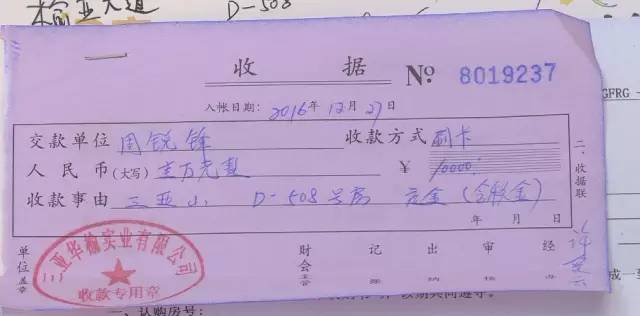 榆亚大道 D-508
收 据 № 8019237
入帐日期: 2016年12月27日
交款单位 周锐锋 收款方式 刷卡
人民币(大写) 壹万元整 ¥ 10000
收款事由 三亚 D-508号房 定金
年 月 日
二、收据联
单位盖章 财会主管 记账 出纳 审核 经
三亚华榆实业有限公司
收款专用章
GFRG
一、认购房号: